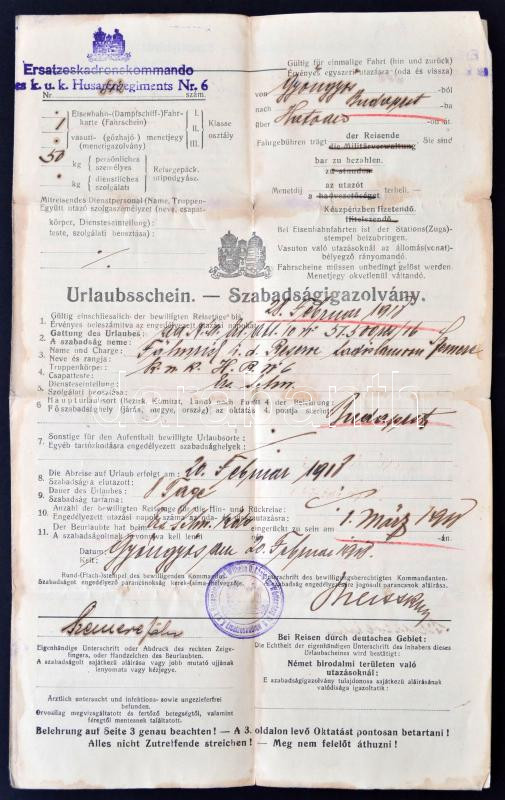 Ersatzeskadronskommando
des k. u. k. Husarenregiments Nr. 6
Nr. szám.
Eisenbahn-(Dampfschiff-)Fahr-
1 karte (Fahrschein)
vasuti- (gőzhajó-) menetjegy
(menetigazolvány)
I.
II.
III.
Klasse
osztály
50 kg persönliches
személyes
kg dienstliches
szolgálati
Reisegepäck.
utipodgyász.
Mitreisendes Dienstpersonal (Name, Truppen-
Együtt utazó szolgaszemélyzet (neve, csapat-
körper, Diensteseinteilung):
teste, szolgálati beosztása):
Gültig für einmalige Fahrt (hin und zurück)
Érvényes egyszeri utazásra (oda és vissza)
von Gyöngyös -ból
nach Budapest -ba
über Hatvan -on át.
Fahrgebühren trägt der Reisende
die Militärverwaltung Sie sind
bar zu bezahlen.
zu stunden
Menetdíj az utazót
a hadvezetőséget terheli.
Készpénzben fizetendő.
Hitelezendő.
Bei Eisenbahnfahrten ist der Stations(Zugs)-
stempel beizubringen.
Vasuton való utazásoknál az állomás(vonat)-
bélyegző rányomandó.
Fahrscheine müssen unbedingt gelöst werden.
Menetjegy okvetlenül váltandó.
Urlaubsschein. — Szabadságigazolvány.
1. Gültig einschliesslich der bewilligten Reisetage bis 28. Februar 1918
Érvényes beleszámítva az engedélyezett utazási napokat
2. Gattung des Urlaubes:
A szabadság neme:
3. Name und Charge: Fähnrich i. d. Reserve Ladislaus Szemere
Neve és rangja:
4. Truppenkörper: k. u. k. H. R. No 6
Csapatteste:
5. Diensteseinteilung:
Szolgálati beosztása:
6. Haupturlaubsort (Bezirk, Komitat, Land) nach Punkt 4 der Belehrung: Budapest
Főszabadsághely (járás, megye, ország) az oktatás 4. pontja szerint
7. Sonstige für den Aufenthalt bewilligte Urlaubsorte:
Egyéb tartózkodásra engedélyezett szabadsághelyek:
8. Die Abreise auf Urlaub erfolgt am: 20. Februar 1918
Szabadságra elutazott:
9. Dauer des Urlaubes: 8 Tage
Szabadság tartama:
10. Anzahl der bewilligten Reisetage für die Hin- und Rückreise:
Engedélyezett utazási napok száma az oda- és visszautazásra:
11. Der Beurlaubte hat beim eingerückt zu sein am 1. März 1918
A szabadságolnak bevonulva kell lenni -án.
Datum: Gyöngyös am 20. Februar 1918.
Kelt:
Rund-(Fach-)stempel des bewilligenden Kommandos.
Szabadságot engedélyező parancsnokság kerek-(szak-)bélyegzője.
Unterschrift des bewilligungsberechtigten Kommandanten.
Szabadság engedélyezésére jogosult parancsnok aláírása.
Szemere fähn.
Eigenhändige Unterschrift oder Abdruck des rechten Zeige-
fingers, oder Handzeichen des Beurlaubten.
A szabadságolt sajátkezű aláírása vagy jobb mutató ujjának
lenyomata vagy kézjegye.
Bei Reisen durch deutsches Gebiet:
Die Echtheit der eigenhändigen Unterschrift des Inhabers dieses
Urlaubscheines wird bestätigt:
Német birodalmi területen való
utazásoknál:
E szabadságigazolvány tulajdonosa sajátkezű aláírásának
valódisága igazoltatik:
Ärztlich untersucht und infektions- sowie ungezieferfrei
befunden.
Orvosilag megvizsgáltatott és fertőző betegségtől, valamint
féregtől mentesnek találtatott.
Belehrung auf Seite 3 genau beachten! — A 3. oldalon levő Oktatást pontosan betartani!
Alles nicht Zutreffende streichen! — Meg nem felelőt áthuzni!